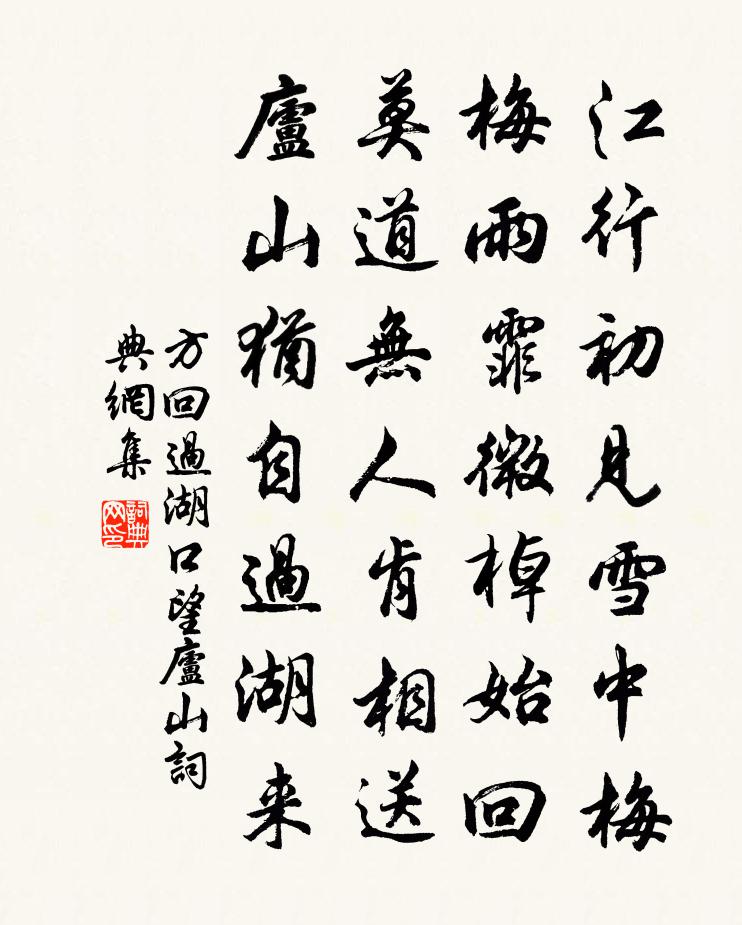 江行初見雪中梅
梅雨霏微棹始回
莫道無人肯相送
廬山猶自過湖来
方回過湖口望廬山詞
典網集
詞典网印